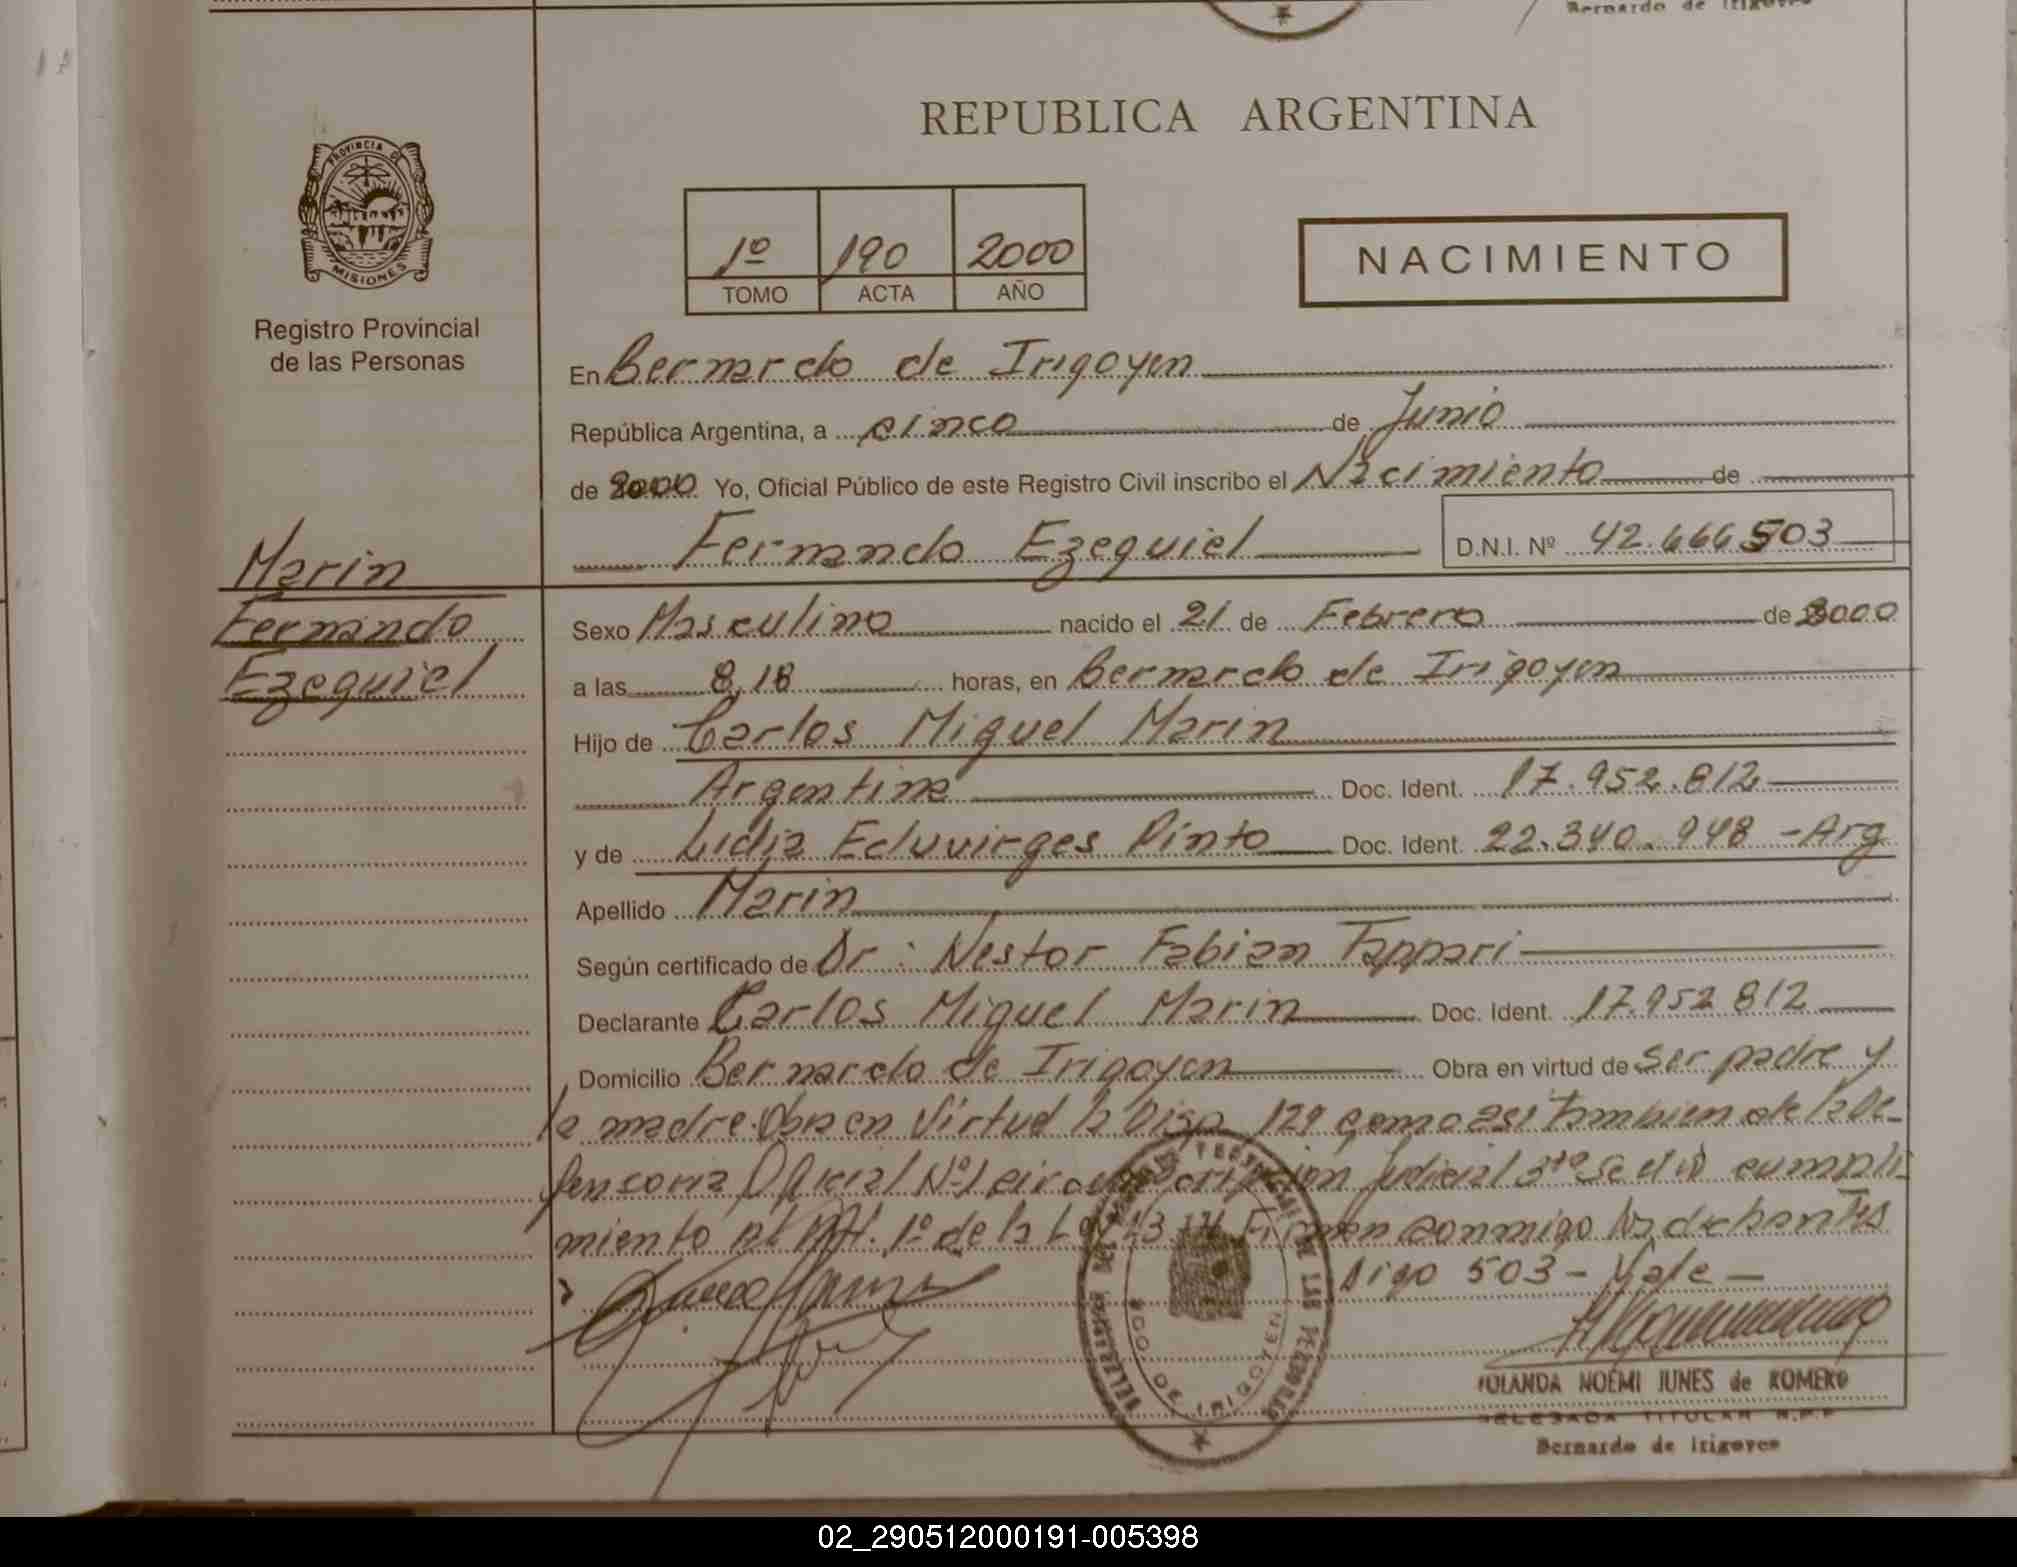 Bernardo de Irigoyen
REPUBLICA ARGENTINA
PROVINCIA DE
MISIONES
1º 190 2000
TOMO ACTA AÑO
NACIMIENTO
Registro Provincial
de las Personas
En Bernardo de Irigoyen
República Argentina, a cinco de Junio
de 2000 Yo, Oficial Público de este Registro Civil inscribo el Nacimiento de
Fernando Ezequiel D.N.I. Nº 42.666503
Marin
Fernando
Ezequiel
Sexo Masculino nacido el 21 de Febrero de 2000
a las 8,18 horas, en Bernardo de Irigoyen
Hijo de Carlos Miguel Marin
Argentina Doc. Ident. 17.952.812
y de Lidia Eduvirges Pinto Doc. Ident. 22.340.948 - Arg
Apellido Marin
Según certificado de Dr: Nestor Fabian Tappari
Declarante Carlos Miguel Marin Doc. Ident. 17.952 812
Domicilio Bernardo de Irigoyen Obra en virtud de ser padre y
la madre. Obra en Virtud la Disp 129 como asi Tambien de la De-
fensoria Oficial Nº1 circunscripcion Judicial 3ra se dió cumpli
miento al Art. 1º de la Ley Firman conmigo los
Digo 503 - Vale -
DE LAS PERSONAS
BDO DE IRIGOYEN
YOLANDA NOEMI JUNES de ROMERO
DELEGADA TITULAR R.P.P
Bernardo de Irigoyen
02_290512000191-005398